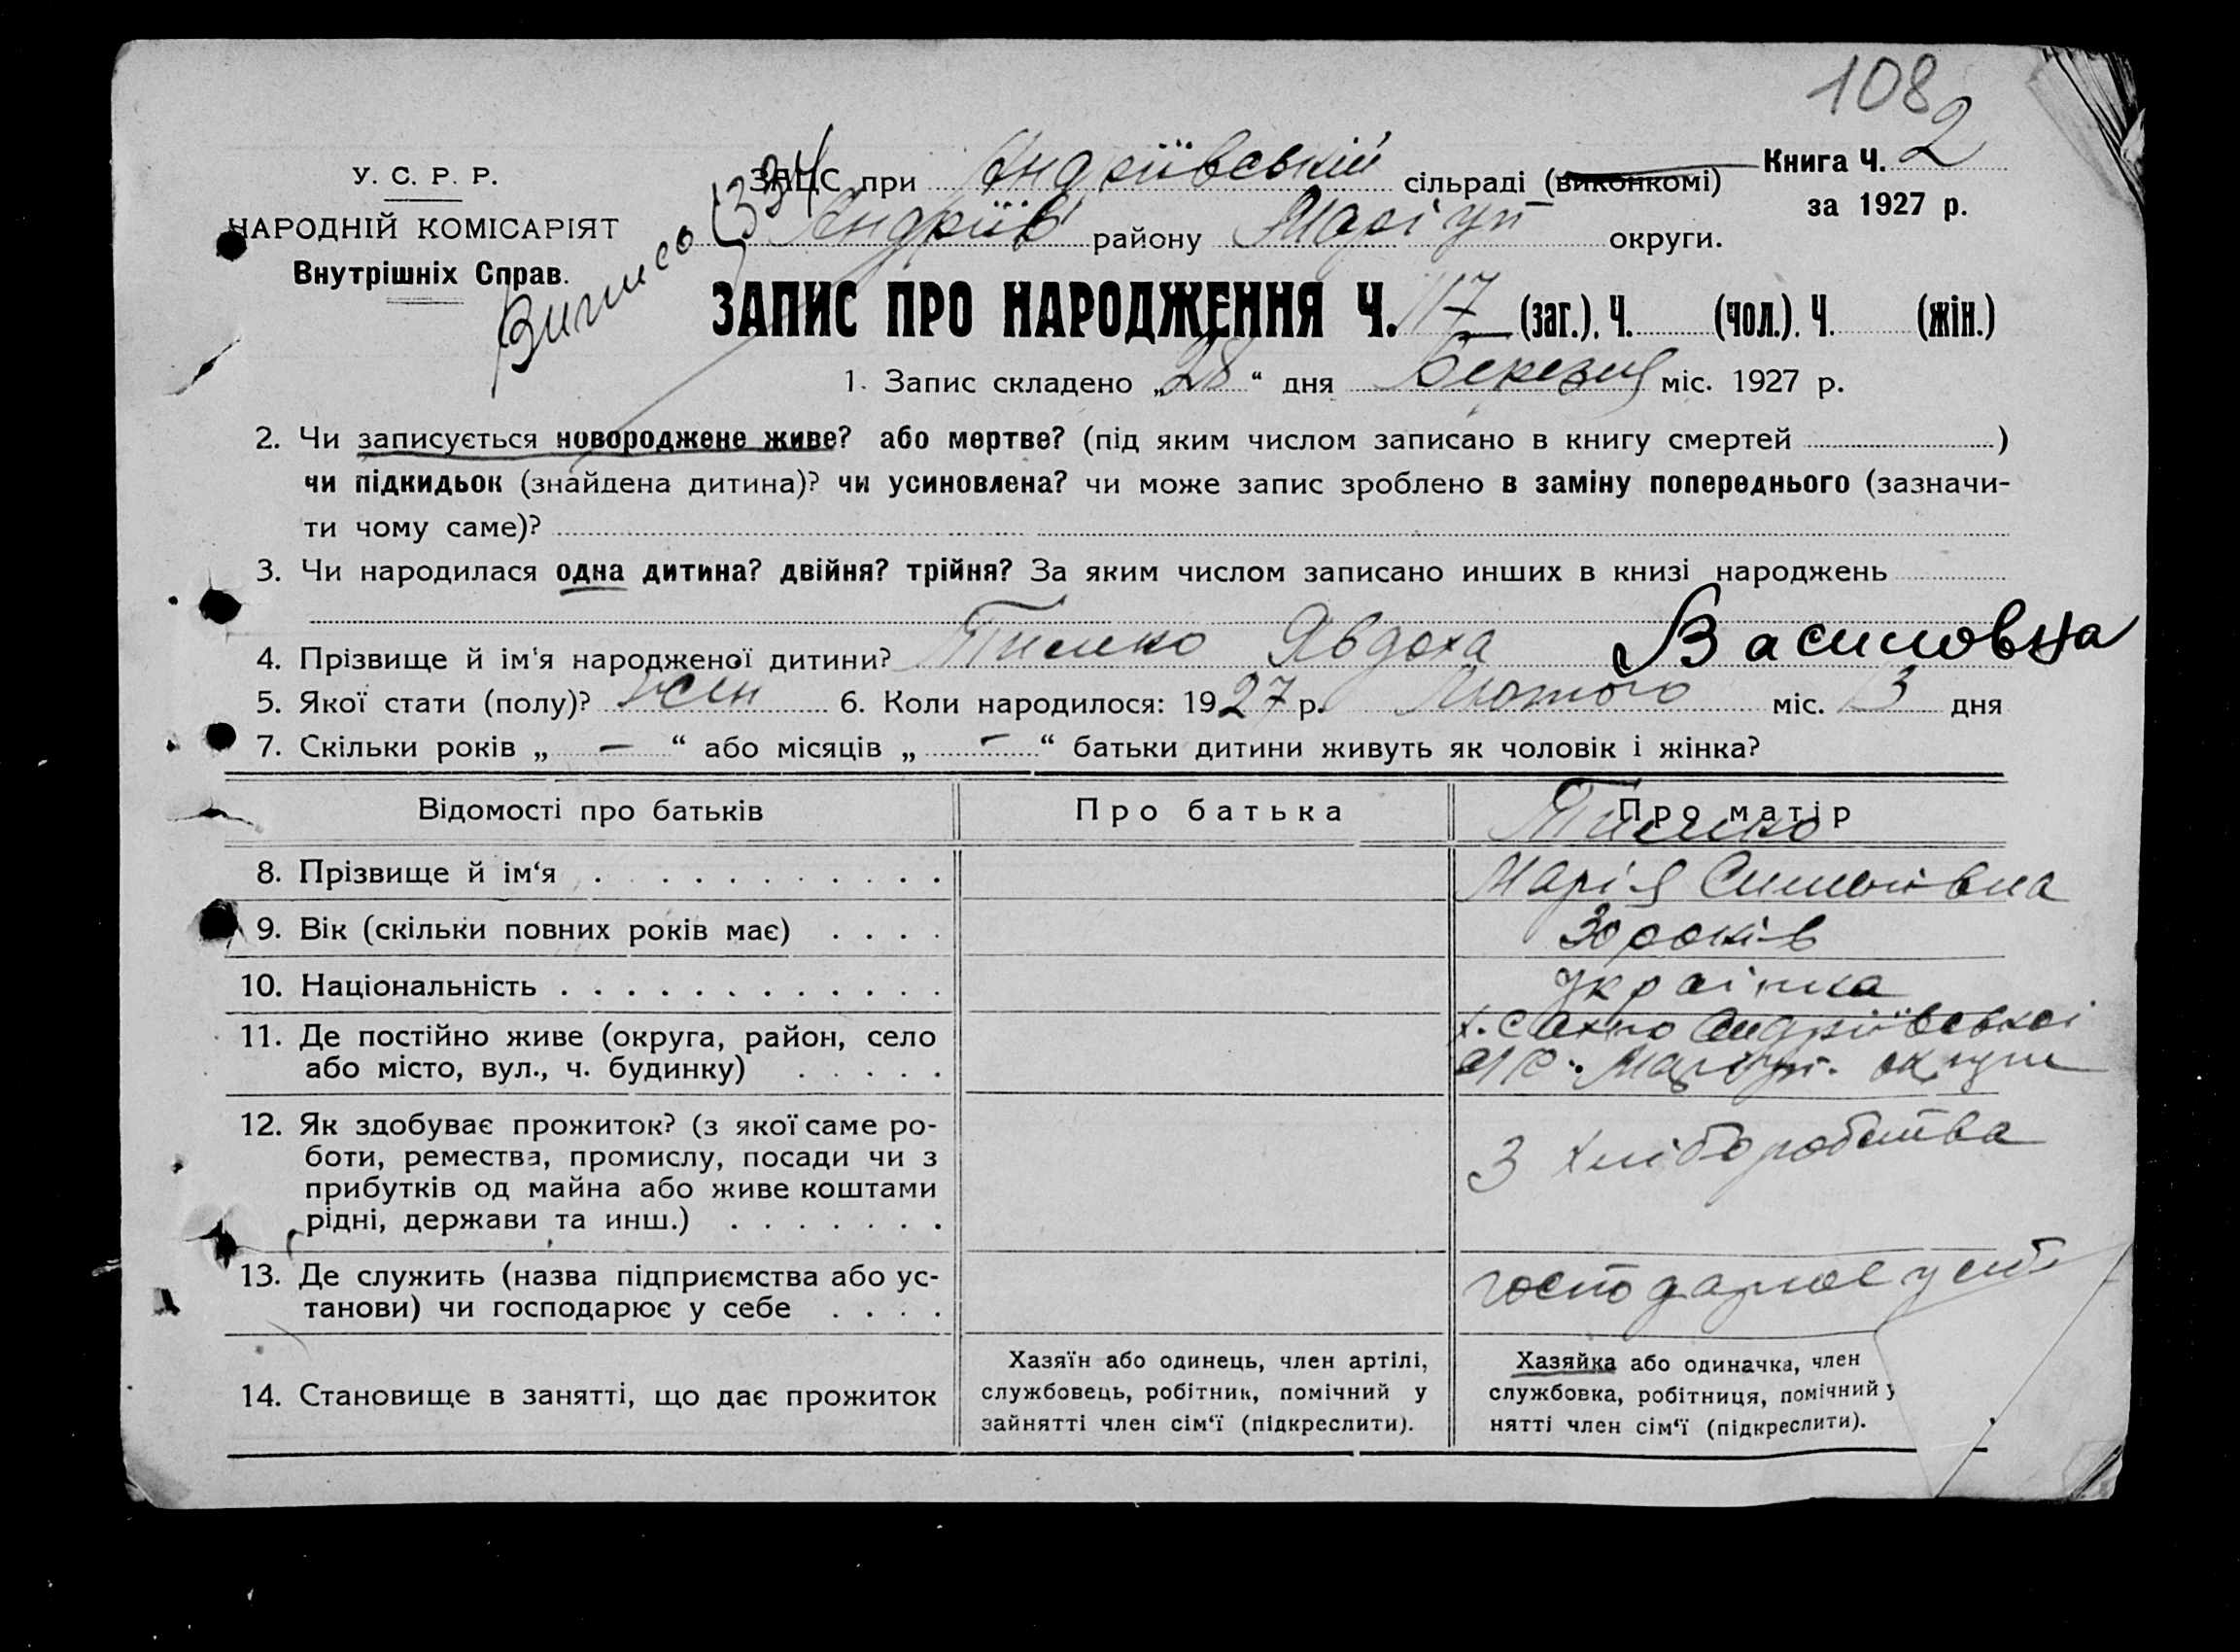 108
У. С. Р. Р.
НАРОДНІЙ КОМІСАРІЯТ
Внутрішніх Справ.
ЗАПИС при Андріївській сільраді (виконкомі)
Книга Ч. 2
за 1927 р.
Андріїв району Маріуп округи.
ЗАПИС ПРО НАРОДЖЕННЯ Ч. 117 (заг.). Ч. (чол.). Ч. (жін.)
1. Запис складено „28“ дня Березня міс. 1927 р.
2. Чи записується новороджене живе? або мертве? (під яким числом записано в книгу смертей )
чи підкидьок (знайдена дитина)? чи усиновлена? чи може запис зроблено в заміну попереднього (зазначи-
ти чому саме)?
3. Чи народилася одна дитина? двійня? трійня? За яким числом записано инших в книзі народжень
4. Прізвище й ім'я народженої дитини? Явдоха Василовна
5. Якої стати (полу)? жен 6. Коли народилося: 1927 р. Лютого міс. 13 дня
7. Скільки років „ — “ або місяців „ — “ батьки дитини живуть як чоловік і жінка?
Відомості про батьків Про батька Про матір
8. Прізвище й ім‘я Марія
9. Вік (скільки повних років має) 30 років
10. Національність Українка
11. Де постійно живе (округа, район, село х. Андріївської
або місто, вул., ч. будинку) Маріуп. округи
12. Як здобуває прожиток? (з якої саме ро-
боти, ремества, промислу, посади чи з З хліборобства
прибутків од майна або живе коштами
рідні, держави та инш.)
13. Де служить (назва підприємства або ус- господарює у себе
танови) чи господарює у себе
14. Становище в занятті, що дає прожиток
Хазяїн або одинець, член артілі,
службовець, робітник, помічний у
зайнятті член сім‘ї (підкреслити).
Хазяйка або одиначка, член
службовка, робітниця, помічний у
нятті член сім‘ї (підкреслити).